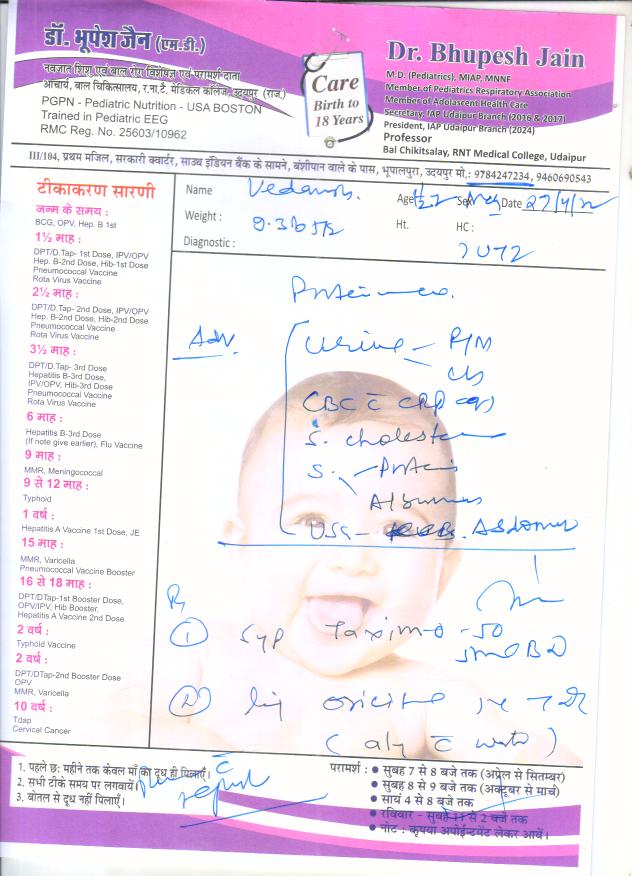 डॉ. भूपेश जैन (एम.डी.)
नवजात शिशु एवं बाल रोग विशेषज्ञ एवं परामर्श दाता
आचार्य, बाल चिकित्सालय, र.ना.टै. मेडिकल कॉलेज, उदयपुर (राज.)
PGPN - Pediatric Nutrition - USA BOSTON
Trained in Pediatric EEG
RMC Reg. No. 25603/10962
Care
Birth to
18 Years
Dr. Bhupesh Jain
M.D. (Pediatrics), MIAP, MNNF
Member of Pediatrics Respiratory Association
Member of Adolascent Health Care
Secretary, IAP Udaipur Branch (2016 & 2017)
President, IAP Udaipur Branch (2024)
Professor
Bal Chikitsalay, RNT Medical College, Udaipur
III/104, प्रथम मजिल, सरकारी क्वार्टर, साउथ इंडियन बैंक के सामने, बंशीपान वाले के पास, भूपालपुरा, उदयपुर मो.: 9784247234, 9460690543
टीकाकरण सारणी
जन्म के समय :
BCG, OPV, Hep. B 1st
1½ माह :
DPT/D.Tap- 1st Dose, IPV/OPV
Hep. B-2nd Dose, Hib-1st Dose
Pneumococcal Vaccine
Rota Virus Vaccine
2½ माह :
DPT/D.Tap- 2nd Dose, IPV/OPV
Hep. B-2nd Dose, Hib-2nd Dose
Pneumococcal Vaccine
Rota Virus Vaccine
3½ माह :
DPT/D.Tap- 3rd Dose
Hepatitis B-3rd Dose,
IPV/OPV, Hib-3rd Dose
Pneumococcal Vaccine
Rota Virus Vaccine
6 माह :
Hepatitis B-3rd Dose
(If note give earlier), Flu Vaccine
9 माह :
MMR, Meningococcal
9 से 12 माह :
Typhoid
1 वर्ष :
Hepatitis A Vaccine 1st Dose, JE
15 माह :
MMR, Varicella
Pneumococcal Vaccine Booster
16 से 18 माह :
DPT/DTap-1st Booster Dose,
OPV/IPV, Hib Booster,
Hepatitis A Vaccine 2nd Dose
2 वर्ष :
Typhoid Vaccine
2 वर्ष :
DPT/DTap-2nd Booster Dose
OPV
MMR, Varicella
10 वर्ष :
Tdap
Cervical Cancer
Name Age Sex Date
Weight : Ht. HC :
Diagnostic :
Adv.
Urine - R/M
C/S
CBC c̄ CRP
S. Cholesterol
S. - Protein
Albumin
USG - Abdomen
Rx
① Syp Taxim-O - 50
5ml BD
②
( c̄ water )
c̄
report
1. पहले छः महीने तक केवल माँ का दूध ही पिलाएँ।
2. सभी टीके समय पर लगवायें।
3. बोतल से दूध नहीं पिलाएँ।
परामर्श : • सुबह 7 से 8 बजे तक (अप्रेल से सितम्बर)
• सुबह 8 से 9 बजे तक (अक्टूबर से मार्च)
• सायं 4 से 8 बजे तक
• रविवार - सुबह 11 से 2 बजे तक
• नोट : कृपया अपोईन्टमेंट लेकर आयें।